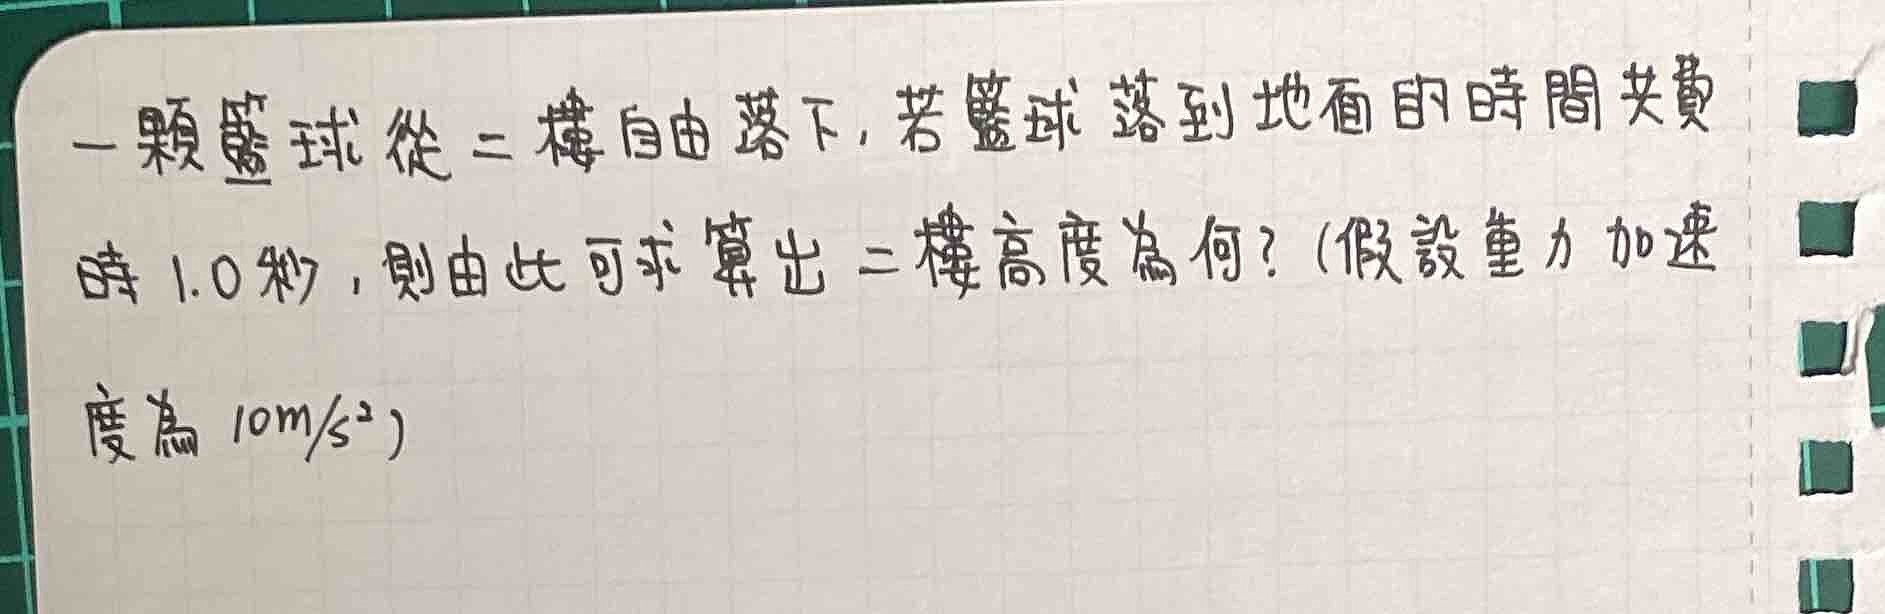 一顆籃球從二樓自由落下,若籃球落到地面的時間共費
時1.0秒,則由此可求算出二樓高度為何?(假設重力加速
度為 10m/s²)